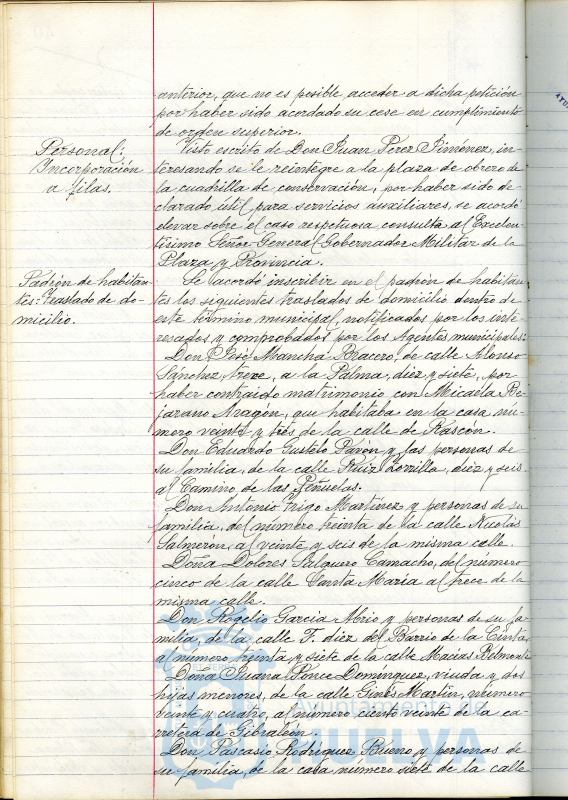 anterior, que no es posible acceder a dicha petición
por haber sido acordado su cese en cumplimiento
de orden superior.
Personal:
Incorporación
a filas.
Visto escrito de Don Juan Perez Jiménez, in-
teresando se le reintegre a la plaza de obrero de
la cuadrilla de conservación, por haber sido de-
clarado útil para servicios auxiliares, se acordó
elevar sobre el caso respetuosa consulta al Excelen-
tísimo Señor General Gobernador Militar de la
Plaza y Provincia.
Padrón de habitan-
tes: traslado de do-
micilio.
Se acordó inscribir en el padrón de habitan-
tes los siguientes traslados de domicilio dentro de
este término municipal, notificados por los inte-
resados y comprobados por los Agentes municipales:
Don José Mancha Bracero, de calle Alonso
Sánchez, trece, a la Palma, diez y siete, por
haber contraido matrimonio con Micaela Be-
jarano Aragón, que habitaba en la casa nú-
mero veinte y tres de la calle de Rascón.
Don Eduardo Gustelo Pavón y las personas de
su familia, de la calle Ruiz Zorrilla, diez y seis
al Camino de las Peñuelas.
Don Antonio Trigo Martínez y personas de su
familia, del número treinta de la calle Nicolás
Salmerón, al veinte y seis de la misma calle.
Doña Dolores Salguero Camacho, del número
cinco de la calle Santa María al trece de la
misma calle.
Don Rogelio García y personas de su fa-
milia, de la calle F. diez del Barrio de la Cinta,
al número treinta y siete de la calle Macías Belmonte
Doña Juana Ponce Dominguez, viuda y dos
hijas menores, de la calle Ginés Martín, número
veinte y cuatro, al número ciento veinte de la ca-
rretera de Gibraleón.
Don Pascasio Rodriguez Bueno y personas de
su familia, de la casa número siete de la calle
Ayuntamiento de
HUELVA